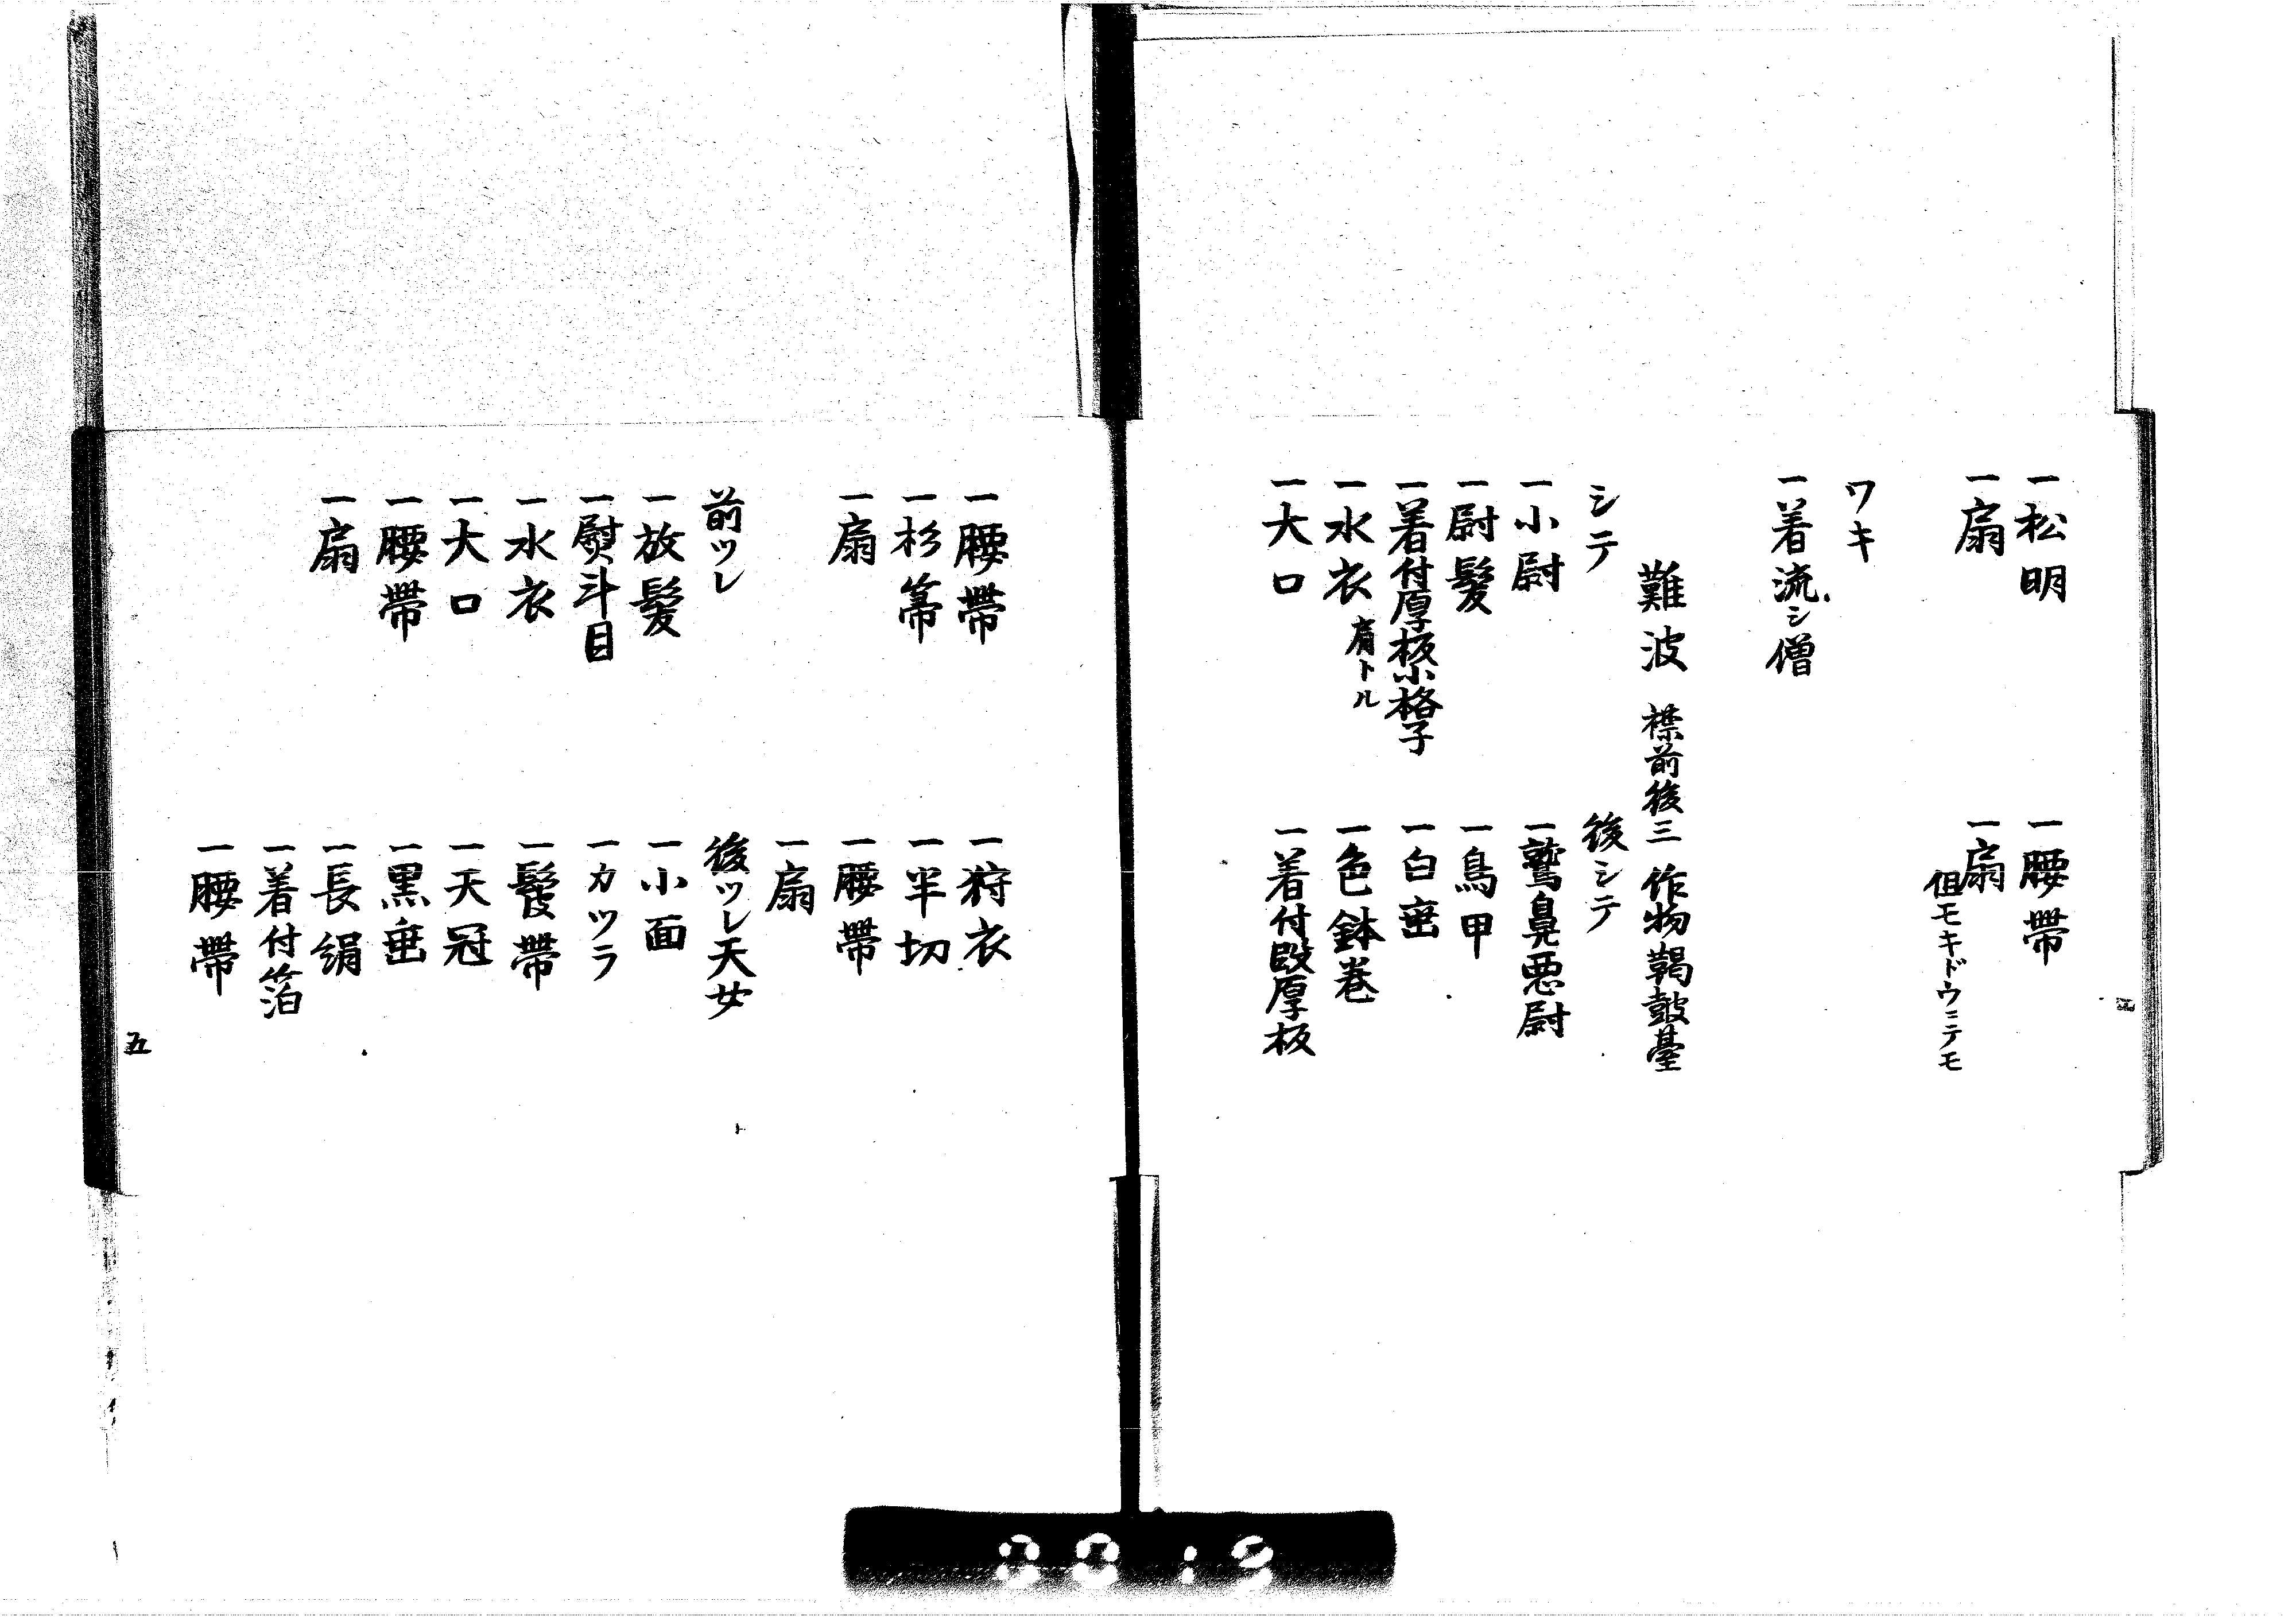 一松明
一扇
一腰帶
一扇
但モキドウニテモ
ワキ
一着流シ僧
難波 襟前後三 作物鞨鼓臺
シテ
一小尉
一尉髪
一着付厚板小格子
一水衣 肩トル
一大口
後シテ
一鷲鼻悪尉
一鳥甲
一白垂
一色鉢巻
一着付段厚板
一腰帶
一杉箒
一扇
一狩衣
一半切
一腰帶
一扇
前ツレ
一放髪
一熨斗目
一水衣
一大口
一腰帶
一扇
後ツレ天女
一小面
一カツラ
一鬘帶
一天冠
一黒垂
一長絹
一着付箔
一腰帶
五